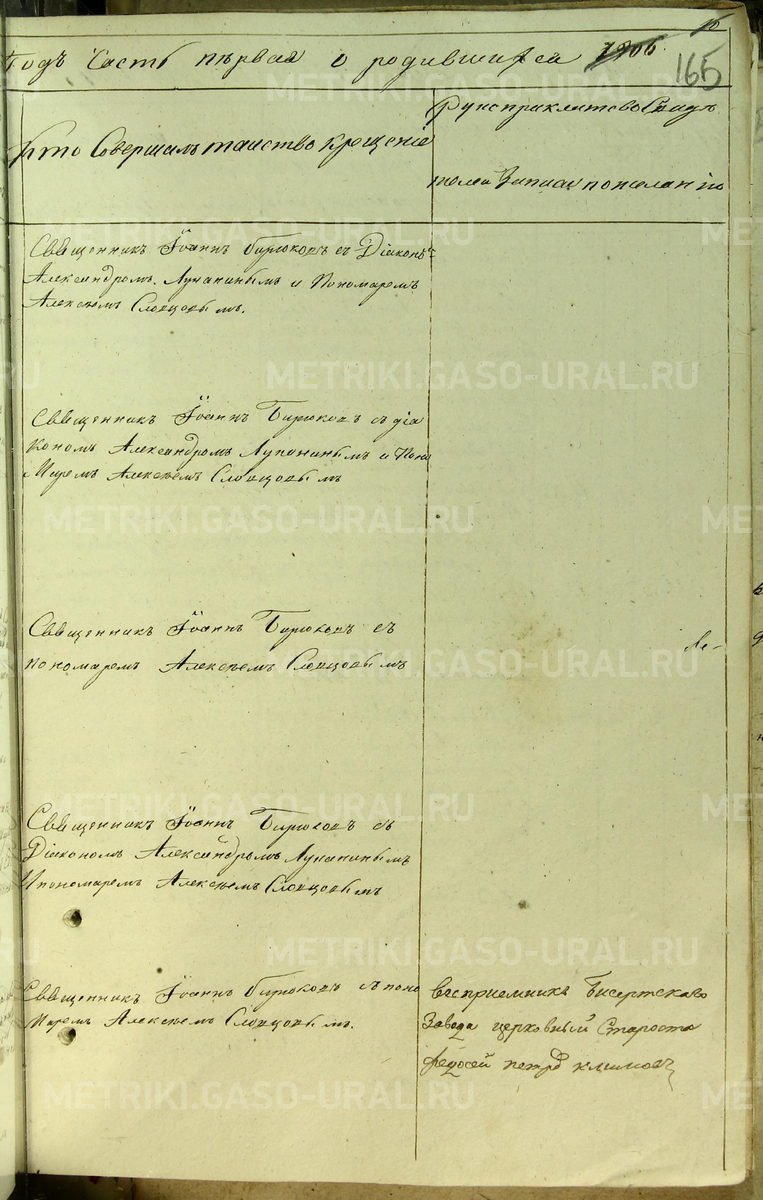 16
Годъ Часть первая о родившихся 1806.
165
Рукоприкладство Свидѣ
Кто Совершалъ таинство крещенія
телей Записи по желанію
Священникъ Іоаннъ Бирюковъ съ Діакономъ
Александромъ Лупанинымъ и Пономаремъ
Алексѣемъ Словцовымъ.
Священникъ Іоаннъ Бирюковъ съ діа
кономъ Александромъ Лупанинымъ и Поно
Маремъ Алексѣемъ Словцовымъ
Священникъ Іоаннъ Бирюковъ съ
пономаремъ Алексѣемъ Словцовымъ
Священникъ Іоаннъ Бирюковъ съ
Діакономъ Александромъ Лупанинымъ
Ипономаремъ Алексѣемъ Словцовымъ
Священникъ Іоаннъ Бирюковъ съ поно
Маремъ Алексѣемъ Словцовымъ.
Васприемникъ Бисертскаво
Завода церковный Староста
федосей петров климовъ
METRIKI.GASO-URAL.RU